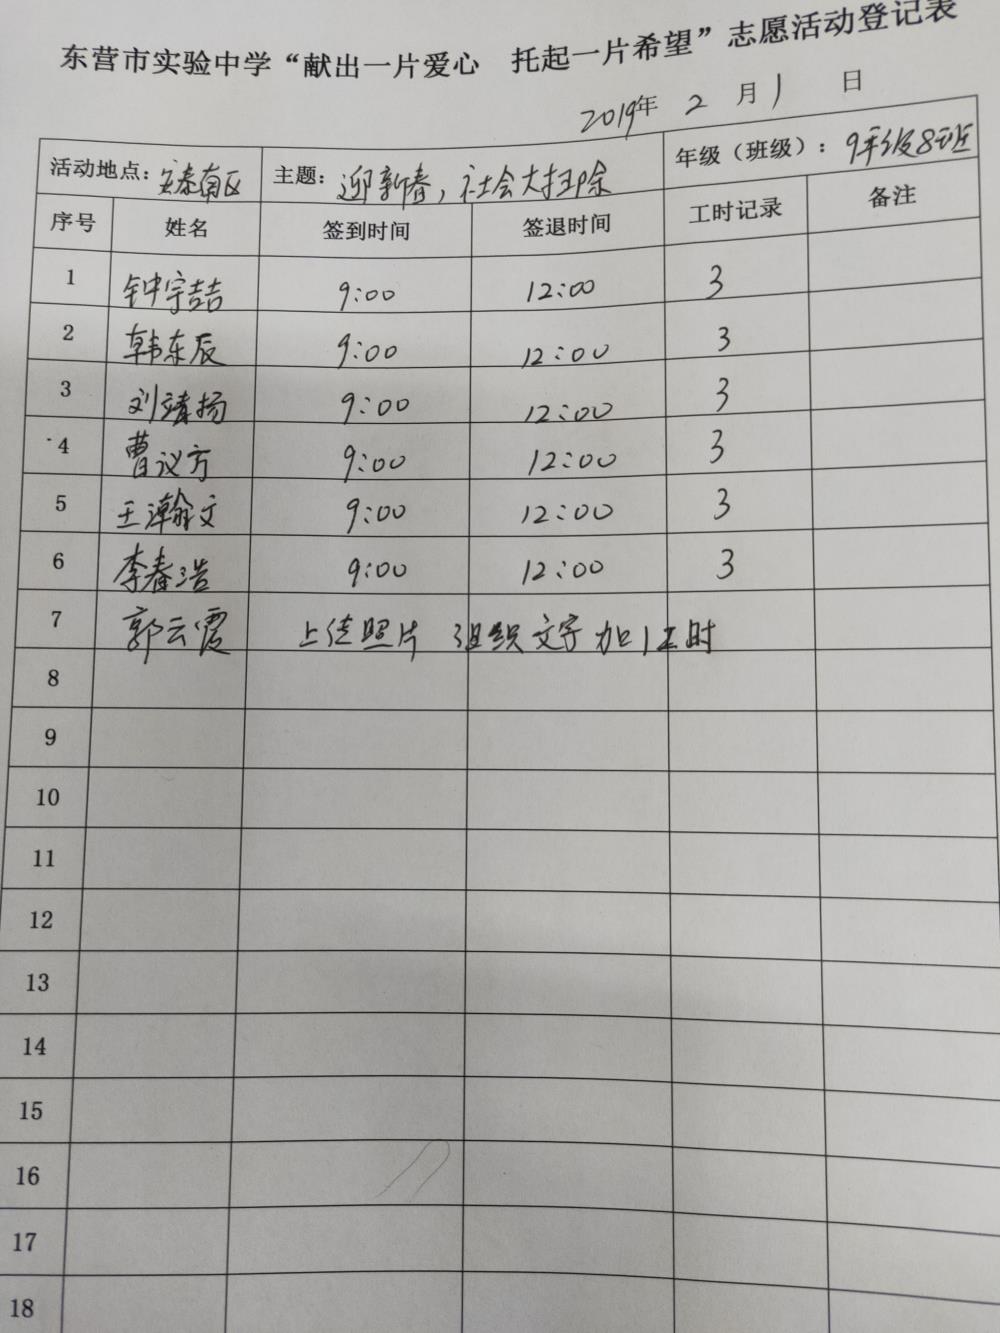 东营市实验中学“献出一片爱心 托起一片希望”志愿活动登记表
2019年 2 月 1 日
活动地点：安泰南区 主题：迎新春，社会大扫除 年级（班级）：9年级8班
序号 姓名 签到时间 签退时间 工时记录 备注
1 钟宇喆 9:00 12:00 3
2 韩东辰 9:00 12:00 3
3 刘靖扬 9:00 12:00 3
4 曹议方 9:00 12:00 3
5 王瀚文 9:00 12:00 3
6 李春浩 9:00 12:00 3
7 郭云霞 上传照片 组织文字加1工时
8
9
10
11
12
13
14
15
16
17
18